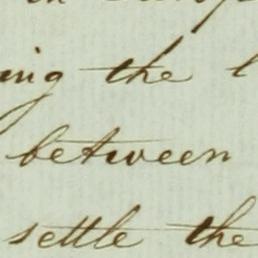 in
ing the
between
settle the